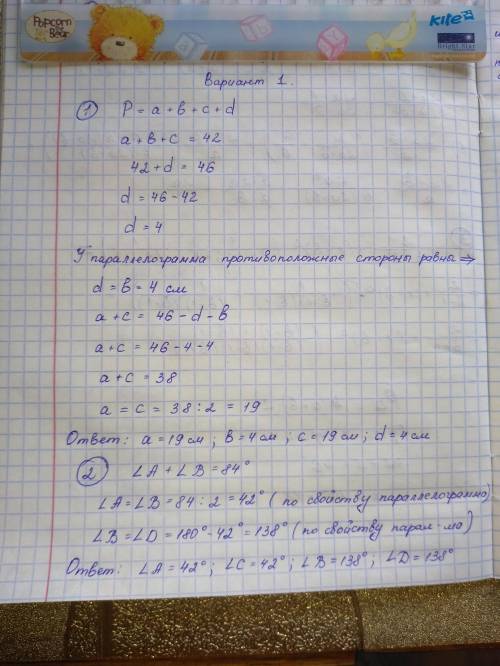 Popcorn
the Bear
Kite
Bright Star
Вариант 1.
① P = a + b + c + d
a + b + c = 42
42 + d = 46
d = 46 - 42
d = 4
У параллелограмма противоположные стороны равны ⇒
d = b = 4 см
a + c = 46 - d - b
a + c = 46 - 4 - 4
a + c = 38
a = c = 38 : 2 = 19
Ответ: a = 19 см ; b = 4 см ; c = 19 см ; d = 4 см
② ∠A + ∠B = 84°
∠A = ∠B = 84 : 2 = 42° (по свойству параллелограмма)
∠B = ∠D = 180° - 42° = 138° (по свойству парал-ма)
Ответ: ∠A = 42° ; ∠C = 42° ; ∠B = 138° ; ∠D = 138°